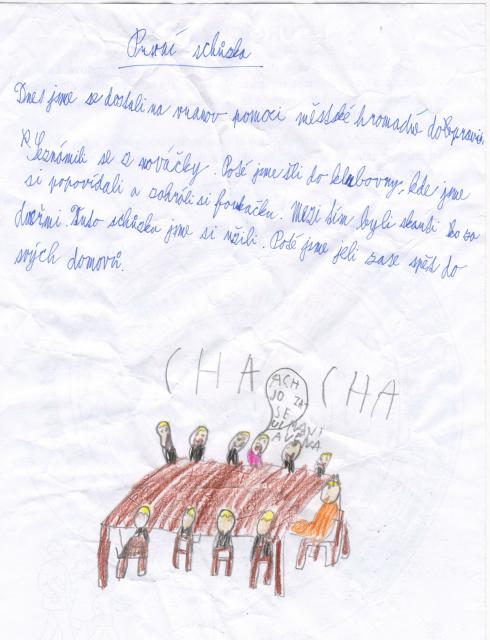 První schůzka
Dnes jme se dostali na vranov pomoci městské hromadné dobpravi.
Seznámili se z nováčky. Poté jsme šli do klubovny, kde jme
si popovídali a zahráli si foukačku. Mezi tím byli skauti ko za
dveřmi. Tuto schůzku jsme si užili. Poté jsme jeli zase spět do
svých domovů.
CHA CHA
ACH
JO ZA-
SE